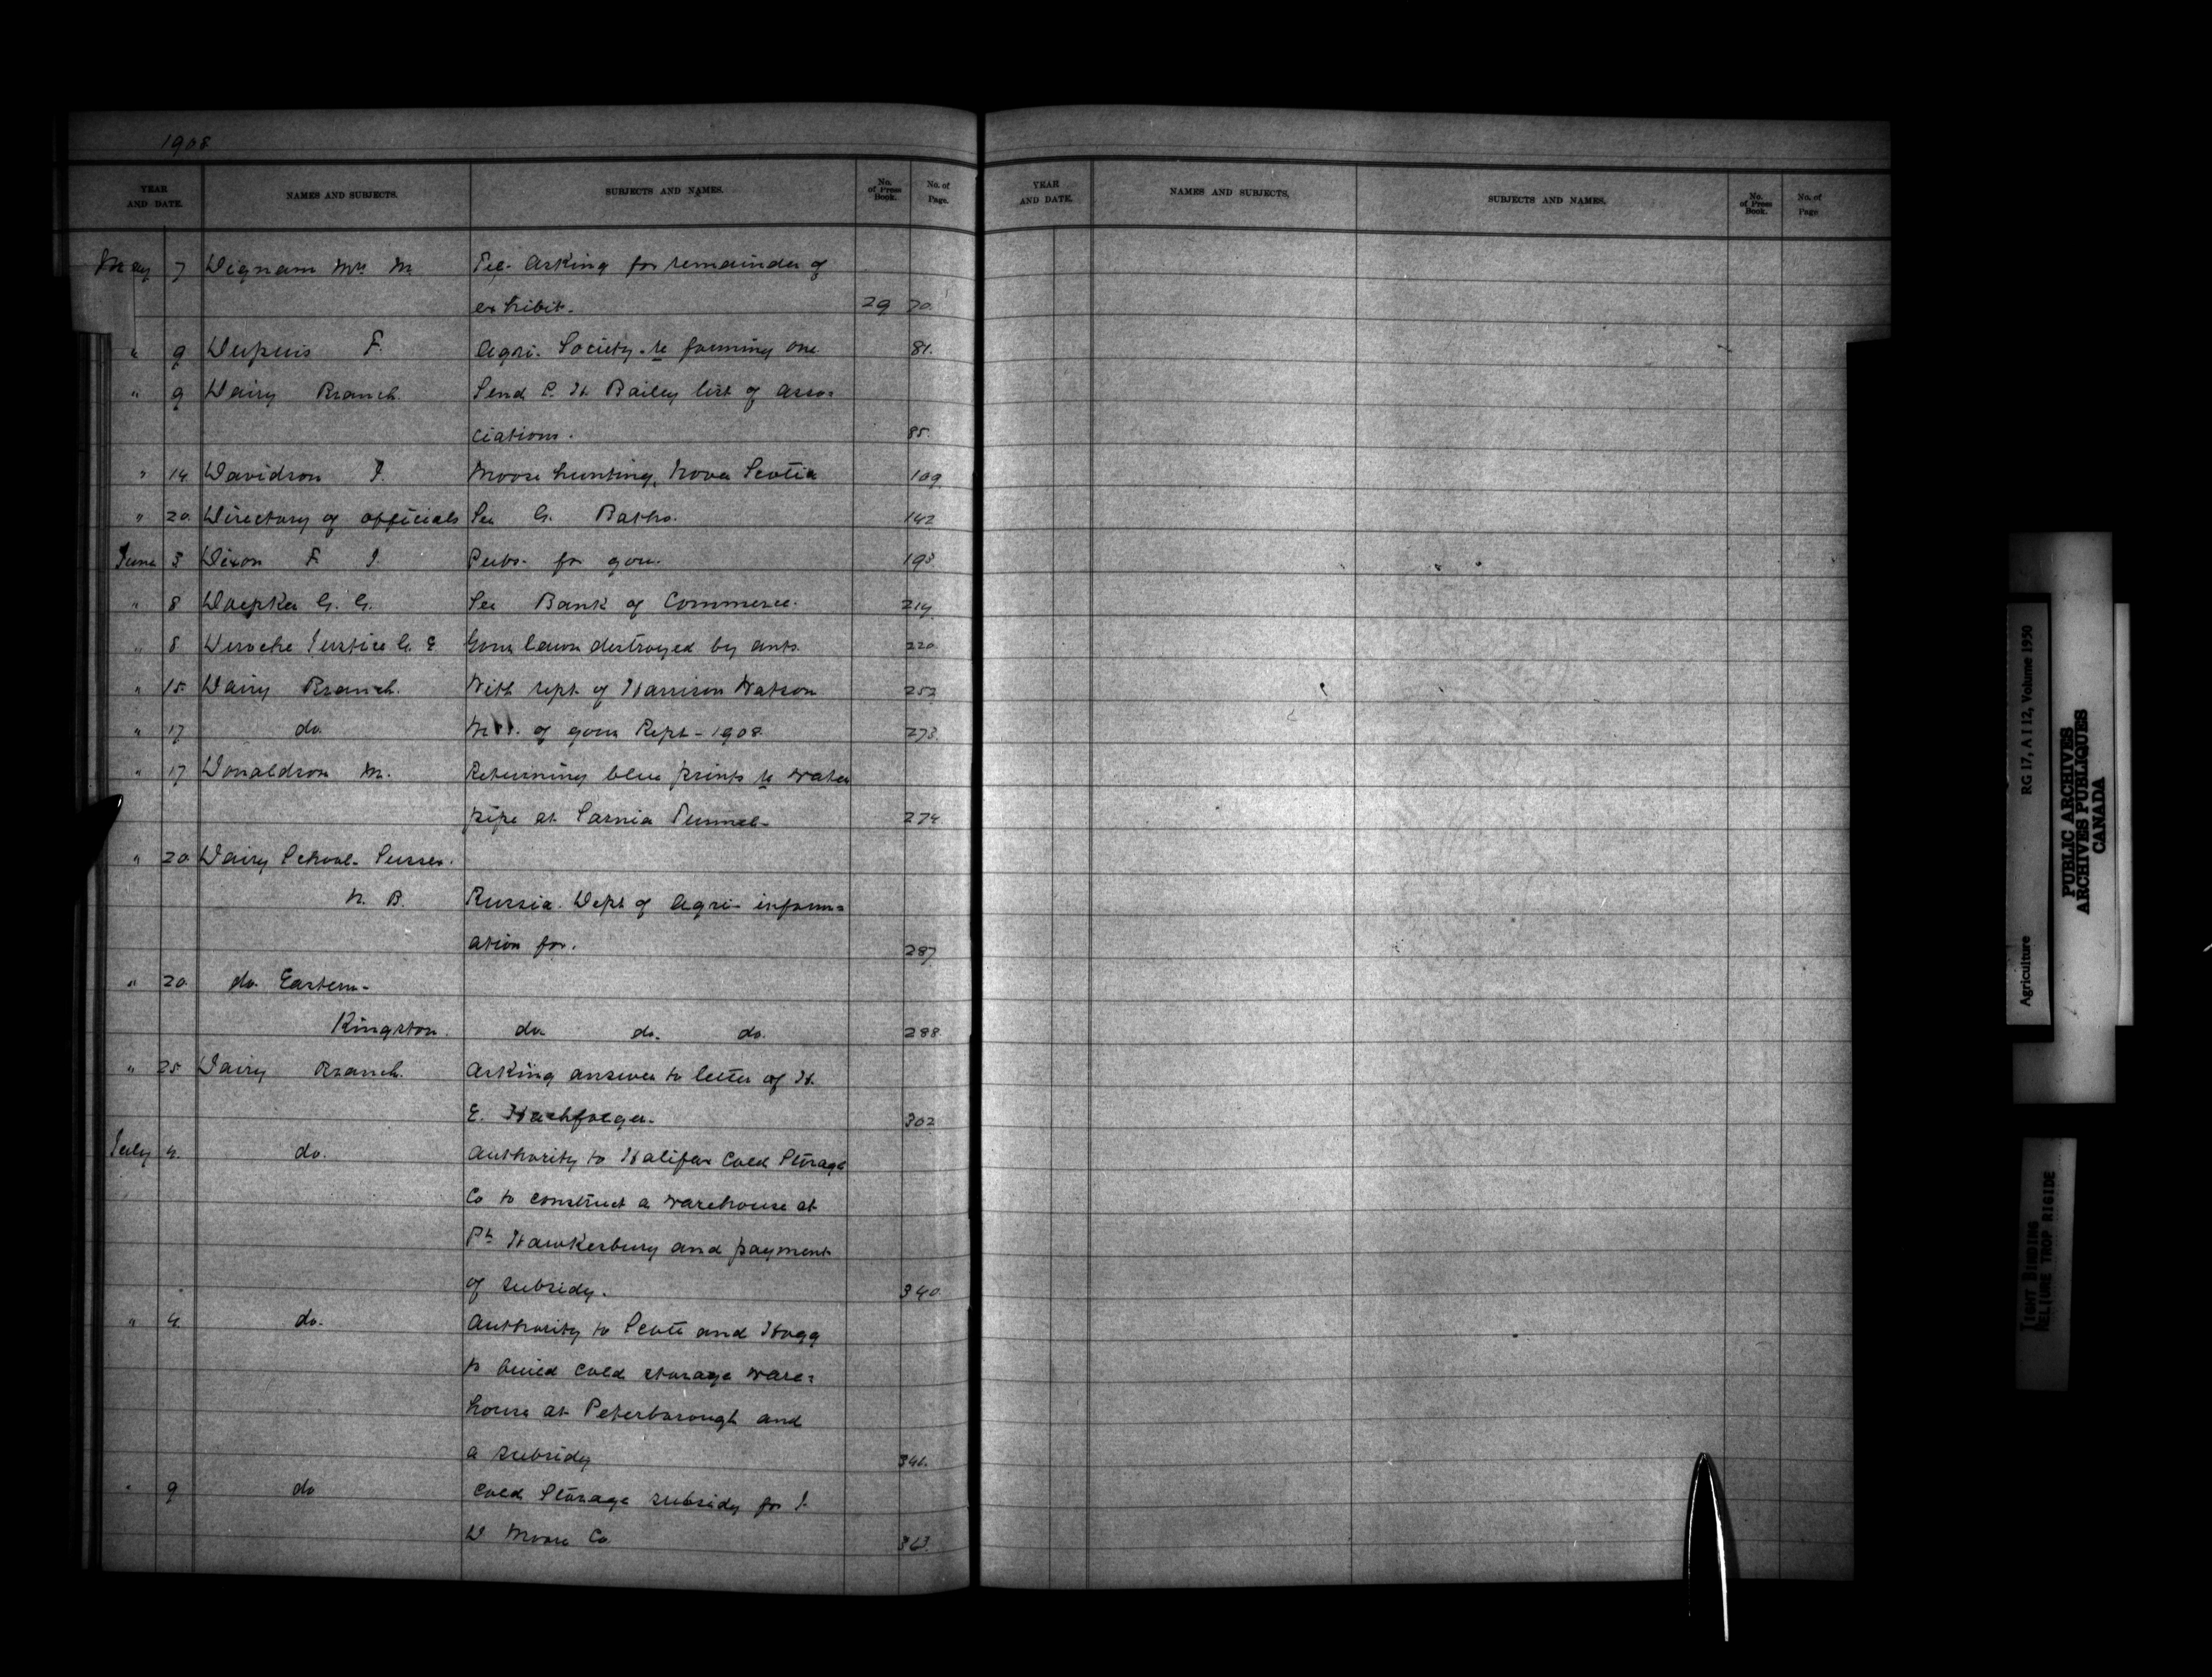 1908
YEAR AND DATE. NAMES AND SUBJECTS. SUBJECTS AND NAMES. No. of Press Book. No. of Page.
May 7 Dignam Mrs M. Tel- Asking for remainder of
exhibit. 29 70.
" 9 Dupuis F. Agri. Society - re forming one 81.
" 9 Dairy Branch. Send P. H. Bailey list of asso=
ciations. 85.
" 14 Davidson J. Moose hunting, Nova Scotia 109
" 20 Directory of officials See G. Batho. 142
June 3 Dixon F. J. Pubs. for gov. 193
" 8 Doepker G. G. See Bank of Commerce. 214
" 8 Deroche Justice G. E Gov. lawn destroyed by ants. 220
" 15 Dairy Branch. With rept. of Harrison Watson 252
" 17 do. of gov. Rept - 1908. 273.
" 17 Donaldson M. Returning blue prints re water
pipe at Sarnia Tunnel- 274
" 20 Dairy School- Sussex.
N. B. Russia Dept of Agri- inform=
ation for. 287
" 20 do. Eastern-
Kingston. do. do. do. 288.
" 25 Dairy Branch. Asking answer to letter of H.
E. 302
July 4. do. Authority to Halifax Cold Storage
Co to construct a warehouse at
Pt Hawkesbury and payment
of subsidy. 340
" 4. do. Authority to Scott and Hogg
to build cold storage ware=
house at Peterborough and
a subsidy 341.
" 9 do Cold Storage subsidy for J.
D Moore Co 363.
YEAR AND DATE. NAMES AND SUBJECTS. SUBJECTS AND NAMES. No. of Press Book. No. of Page
Agriculture RG 17, A I 12, Volume 1950
PUBLIC ARCHIVES
ARCHIVES PUBLIQUES
CANADA
TIGHT BINDING
RELIURE TROP RIGIDE